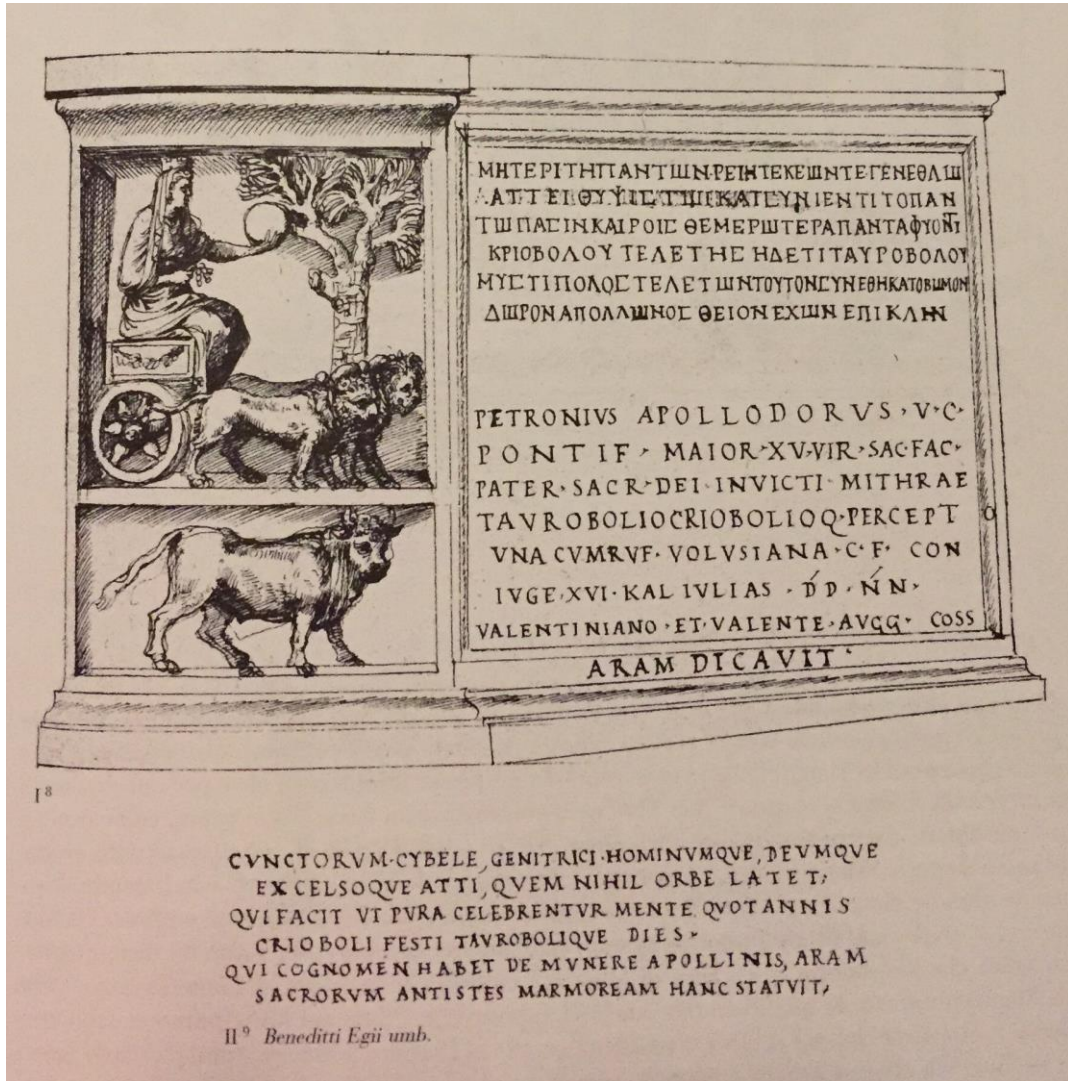 ΜΗΤΕΡΙΤΗΠΑΝΤШΝ·ΡΕΙΗΤΕΚΕШΝΤΕΓΕΝΕΘΛШ
ΑΤΤΕΙΘΥΨΙСΤШΙΚΑΙСΥΝΙΕΝΤΙΤΟΠΑΝ
ΤШΠΑСΙΝΚΑΙΡΟΙС ΘΕΜΕΡШΤΕΡΑΠΑΝΤΑΦΥΟΝΤΙ
ΚΡΙΟΒΟΛΟΥ ΤΕΛΕΤΗС ΗΔΕΤΙΤΑΥΡΟΒΟΛΟΥ
ΜΥСΤΙΠΟΛΟС ΤΕΛΕΤШΝΤΟΥΤΟΝСΥΝΕΘΗΚΑΤΟΒШΜΟΝ
ΔШΡΟΝΑΠΟΛΛШΝΟС ΘΕΙΟΝΕΧШΝ ΕΠΙΚΛΗΝ
PETRONIVS APOLLODORVS · V · C ·
PONTIF · MAIOR · XV · VIR · SAC · FAC ·
PATER · SACR · DEI · INVICTI · MITHRAE
TAVROBOLIOCRIOBOLIOQ · PERCEPT
VNA CVMRVF · VOLVSIANA · C · F · CON
IVGE · XVI · KAL IVLIAS · D́D · ŃN ·
VALENTINIANO · ET · VALENTE · AVGG · COSS
ARAM DICAVIT ·
I⁸
CVNCTORVM · CYBELE, GENITRICI · HOMINVMQVE, DEVMQVE
EXCELSOQVE ATTI, QVEM NIHIL ORBE LATET;
QVI FACIT VT PVRA CELEBRENTVR MENTE QVOTANNIS
CRIOBOLI FESTI TAVROBOLIQVE DIES ·
QVI COGNOMEN HABET DE MVNERE APOLLINIS, ARAM
SACRORVM ANTISTES MARMOREAM HANC STATVIT,
II⁹ Beneditti Egii umb.